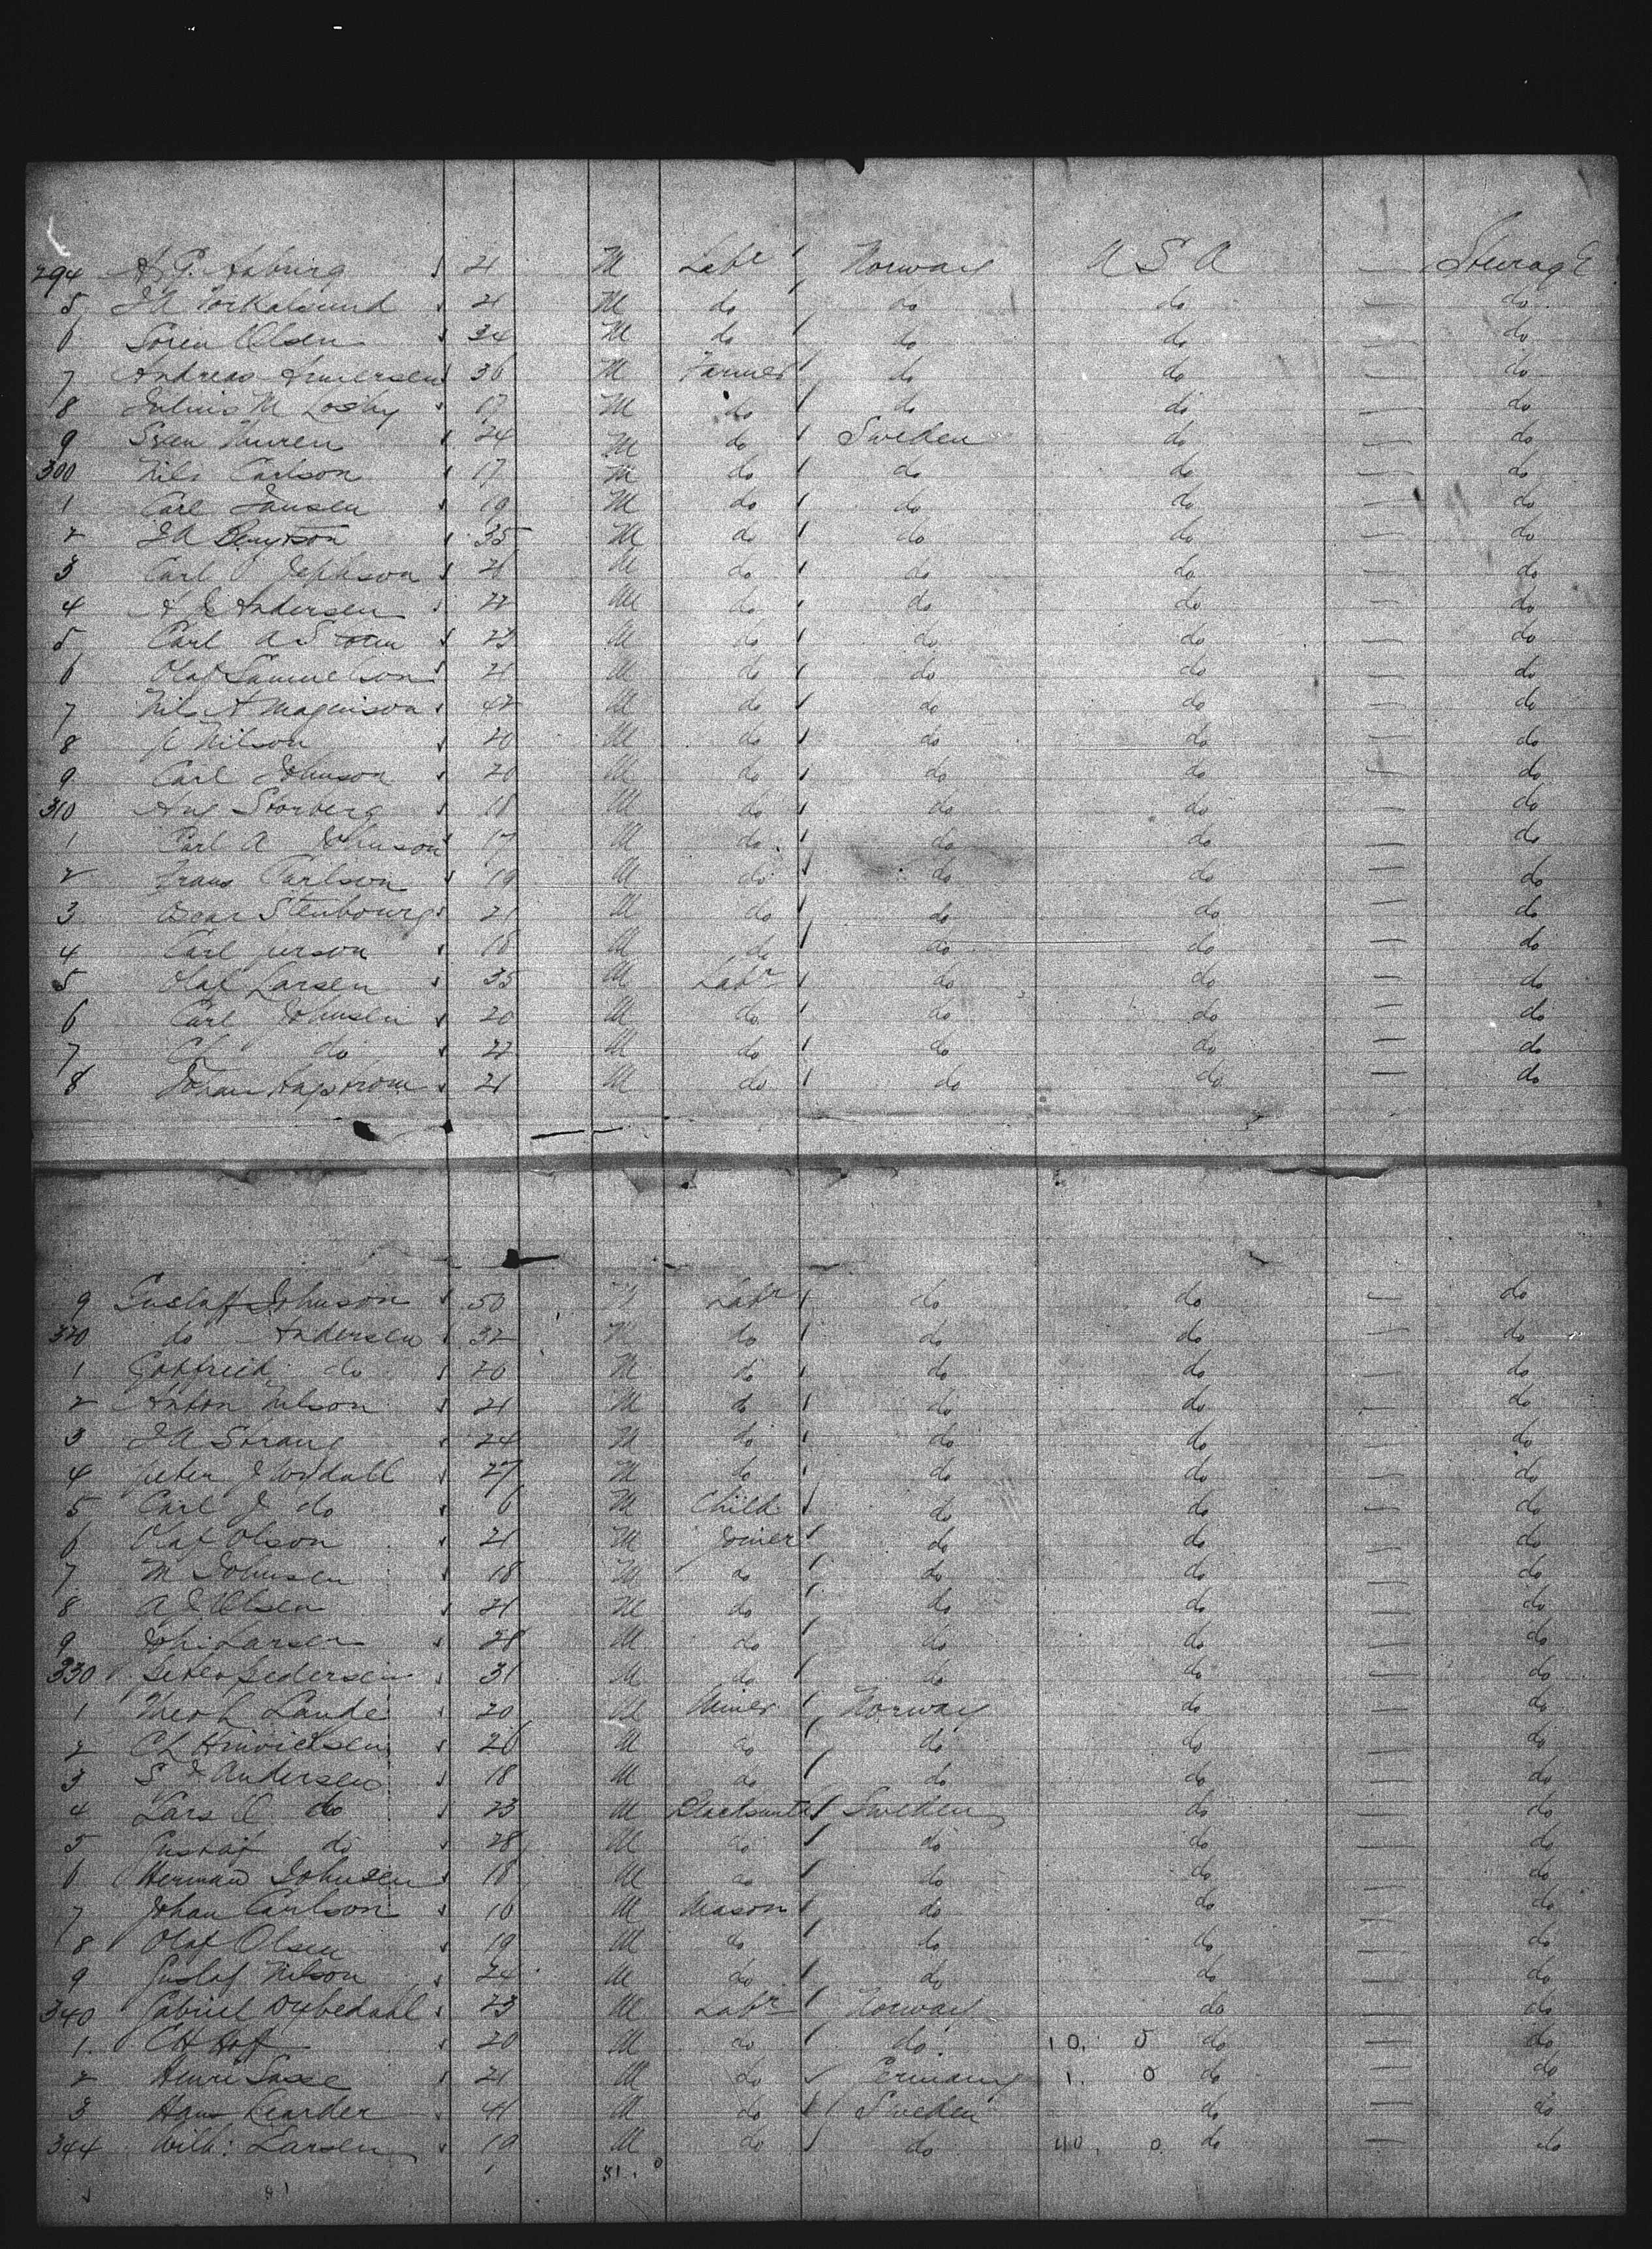 294 A. P. Aaburg 21 M Labr Norway U S A — Steerage
5 21 M do do do — do
6 Soren Olsen 34 M do do do — do
7 Andreas 36 M Farmer do do — do
8 Julius M Losby 17 M do do do — do
9 Sven Thuren 24 M do Sweden do — do
300 Nils Carlson 17 M do do do — do
1 Carl Jansen 19 M do do do — do
2 J A Bengtson 35 M do do do — do
3 Carl Jephson 21 M do do do — do
4 A J Andersen 22 M do do do — do
5 Carl A Strom 23 M do do do — do
6 Olaf Samuelson 21 M do do do — do
7 Nils A Magnison 42 M do do do — do
8 Nilson 20 M do do do — do
9 Carl Johnson 20 M do do do — do
310 Aug Storberg 18 M do do do — do
1 Carl A Johnson 17 M do do do — do
2 Frans Carlson 19 M do do do — do
3 Oscar Stenbourg 21 M do do do — do
4 Carl 18 M do do do — do
5 Olaf Larsen 35 M Labr do do — do
6 Carl Johnsen 20 M do do do — do
7 Ch do 22 M do do do — do
8 Johan Hagstrom 21 M do do do — do
9 Gustaf Johnson 50 M Labr do do — do
320 do Andersen 32 M do do do — do
1 Gottfried do 20 M do do do — do
2 Anton Nilson 21 M do do do — do
3 J A Strang 24 M do do do — do
4 Peter J 27 M do do do — do
5 Carl J do 6 M Child do do — do
6 Olaf Olson 21 M Joiner do do — do
7 M Johnsen 18 M do do do — do
8 A J Olsen 21 M do do do — do
9 Larsen 28 M do do do — do
330 Peter Pedersen 31 M do do do — do
1 Lande 20 M Miner Norway do — do
2 Ch Hinrichsen 26 M do do do — do
3 S J Andersen 18 M do do do — do
4 Lars O do 23 M Blacksmith Sweden do — do
5 Gustaf do 28 M do do do — do
6 Herman Johnsen 18 M do do do — do
7 Johan Carlson 16 M Mason do do — do
8 Olaf Olsen 19 M do do do — do
9 Gustaf Nilson 24 M do do do — do
340 Gabriel Dybedahl 23 M Labr Norway do — do
1 C H Hoff 20 M do do 10. 0 do — do
2 Henri Sasse 21 M do Germany 1. 0 do — do
3 Hans 41 M do Sweden do — do
344 Wilh: Larsen 19 M do do 40. 0 do — do
81. 0
81